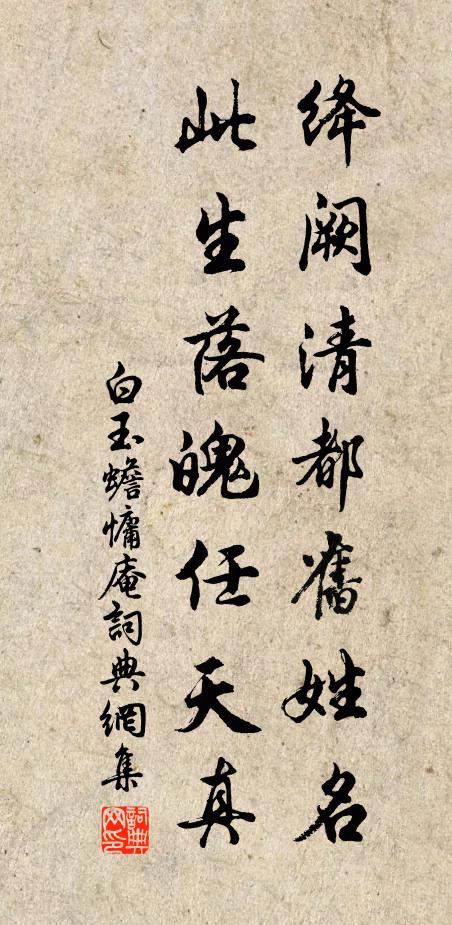 绛阙清都舊姓名
此生落魄任天真
白玉蟾慵庵詞典網集
詞典网印